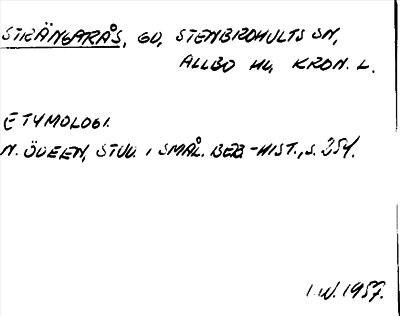 STRÄNGARÅS, GD, STENBROHULTS SN,
ALLBO HD, KRON. L.
ETYMOLOGI.
N. ÖDEEN, STUD. I SMÅL. BEB-HIST., S. 254.
I.W. 1957.